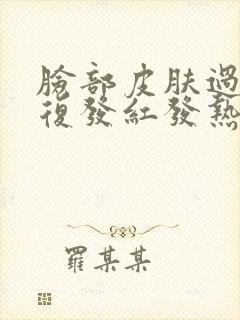 臉部皮肤過
復發紅發熱
羅某某